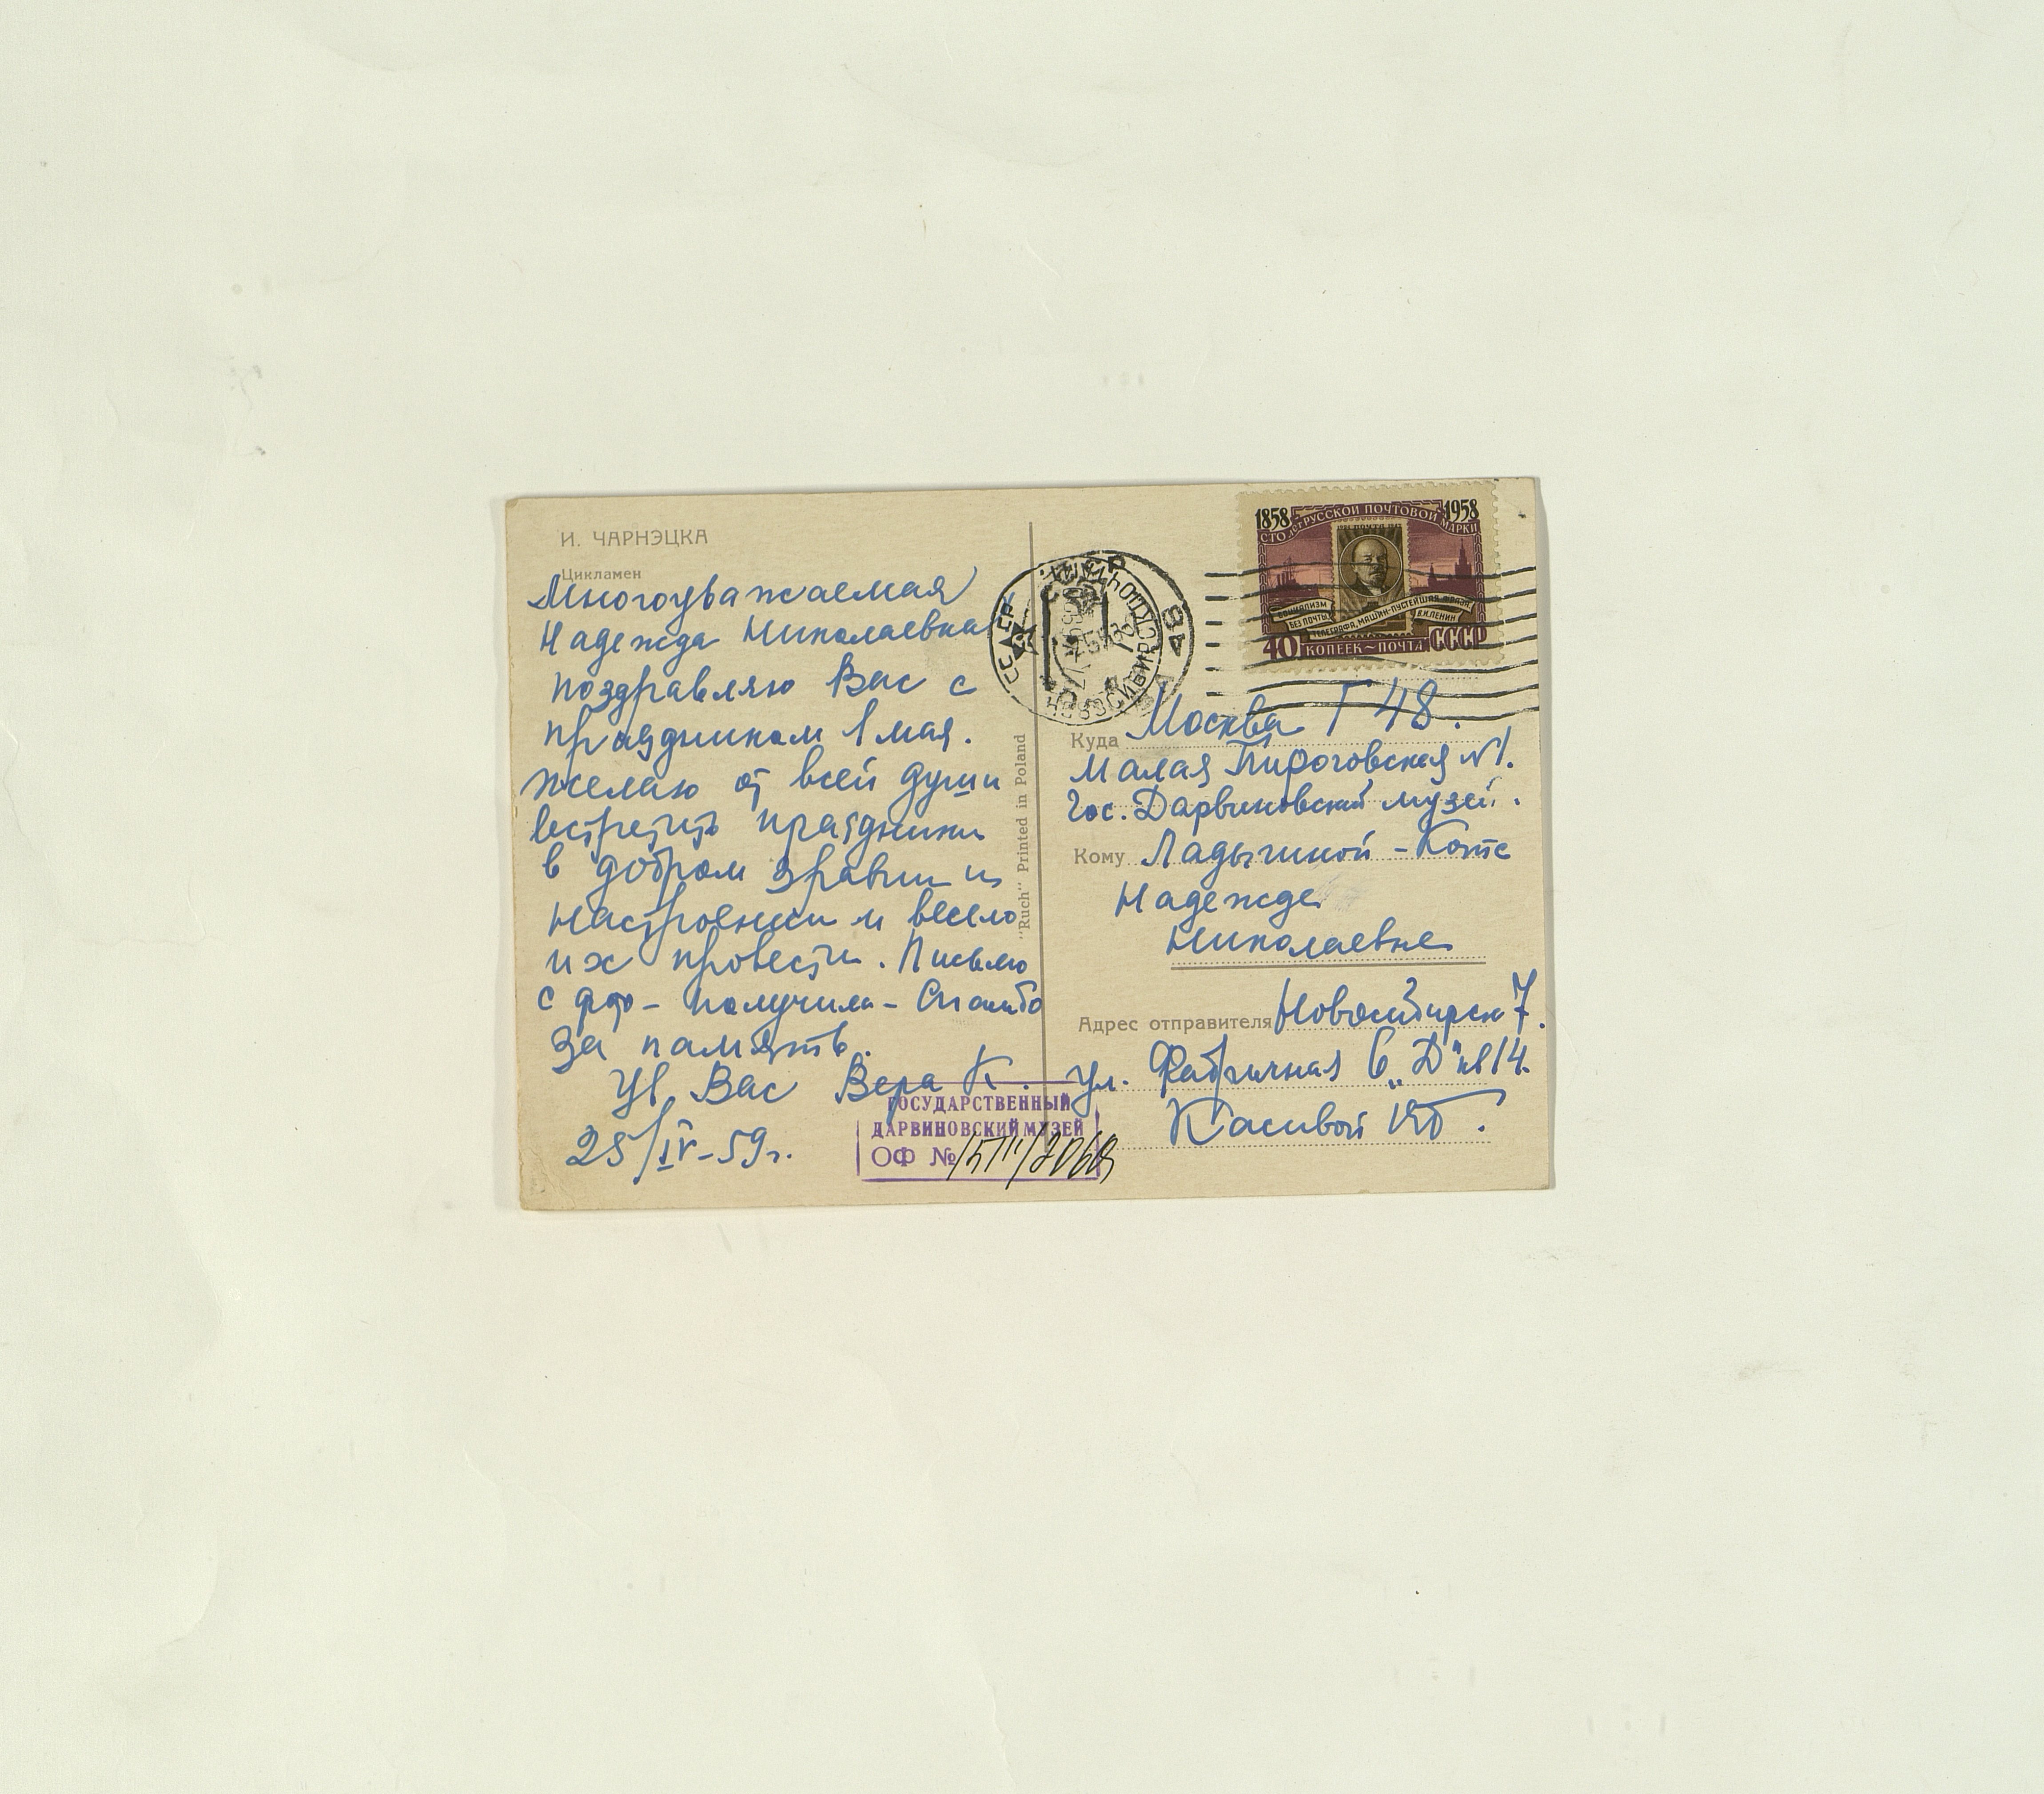 И. ЧАРНЭЦКА
Цикламен
Многоуважаемая
Надежда Николаевна
поздравляю Вас с
праздником 1 мая.
Желаю от всей души
встретить праздники
в добром здравии и
настроении и весело
их провести. Письмо
с фото - получила - Спасибо
за память.
Ув Вас Вера К.
25/IV-59г.
"Ruch" Printed in Poland
ГОСУДАРСТВЕННЫЙ
ДАРВИНОВСКИЙ МУЗЕЙ
ОФ №
НОВОСИБИРСК
1858 1958
СТО ЛЕТ РУССКОЙ ПОЧТОВОЙ МАРКИ
СОЦИАЛИЗМ
БЕЗ ПОЧТЫ,
ТЕЛЕГРАФА, МАШИН-ПУСТЕЙШАЯ ФРАЗА
В.И.ЛЕНИН
40 КОПЕЕК~ПОЧТА СССР
Куда Москва Г 48.
Малая Пироговская №1.
Гос. Дарвиновский музей.
Кому Ладыгиной-Котс
Надежде
Николаевне
Адрес отправителя Новосибирск 7.
ул. Фабричная 6 „Д" кв 14.
Касивой